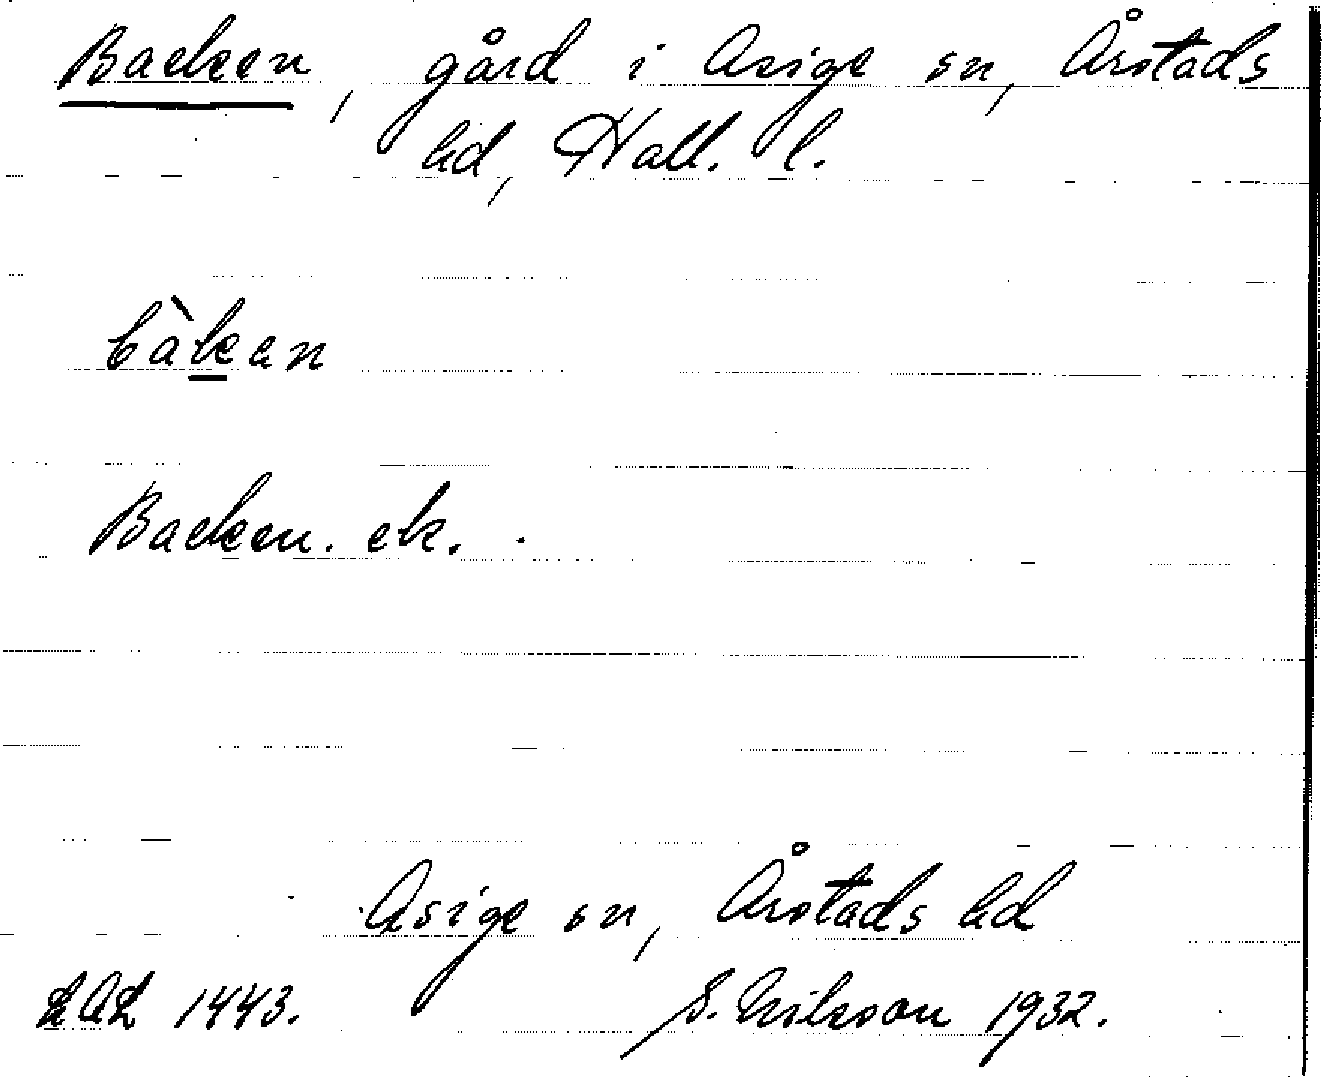 Backen, gård i Asige sn, Årstads
hd, Hall. l.
bàkan
Backen. ek.
Asige sn, Årstads hd
LAL 1443. S. Nilsson 1932.